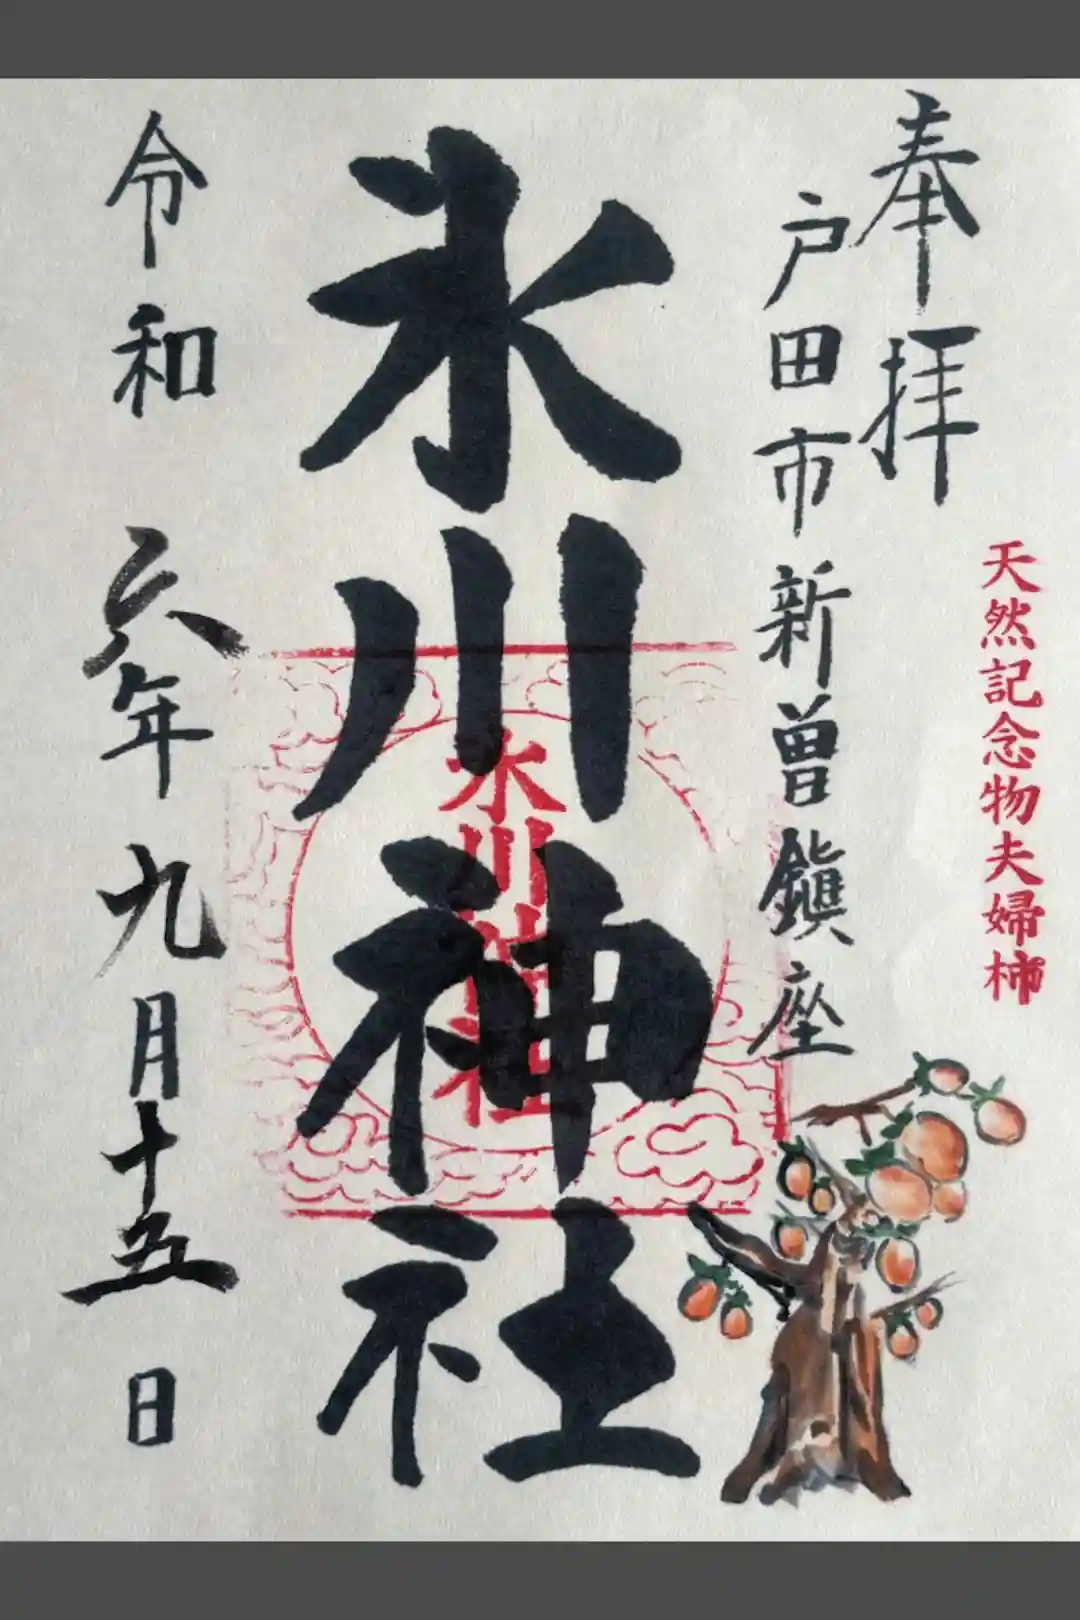 奉拝
天然記念物夫婦柿
戸田市新曽鎮座
氷川神社
氷川神社
令和六年九月十五日